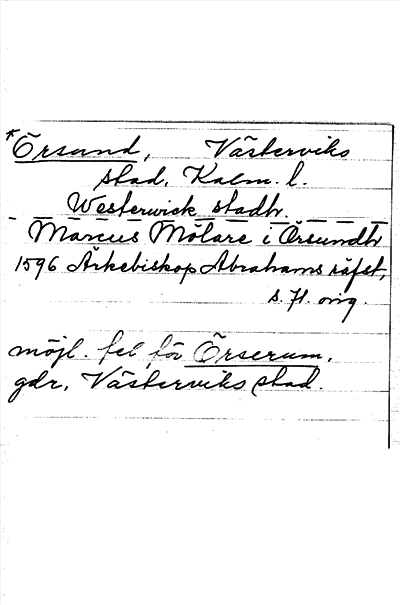 *Örsund, Västerviks
stad, Kalm. l.
Westerwick stadh.
Marcus Mölare i Örsundh
1596 Ärkebiskop Abrahams räfst,
s. 71. orig.
möjl. fel för Örserum,
gdr, Västerviks stad.